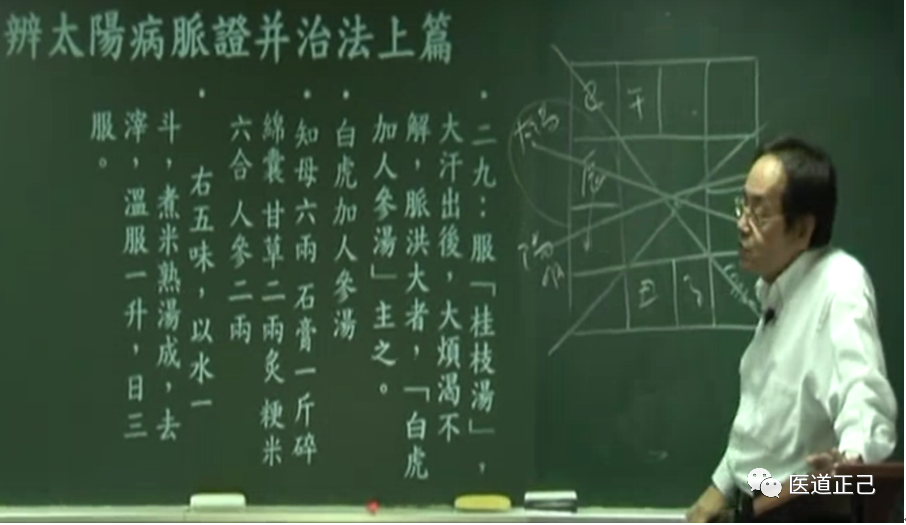 辨太陽病脈證并治法上篇
・二九：服「桂枝湯」，
大汗出後，大煩渴不
解，脈洪大者，「白虎
加人參湯」主之。
・白虎加人參湯
・知母六兩 石膏一斤碎
綿囊 甘草二兩炙 粳米
六合 人參二兩
・ 右五味，以水一
斗，煮米熟湯成，去
滓，溫服一升，日三
服。
丑
医道正己